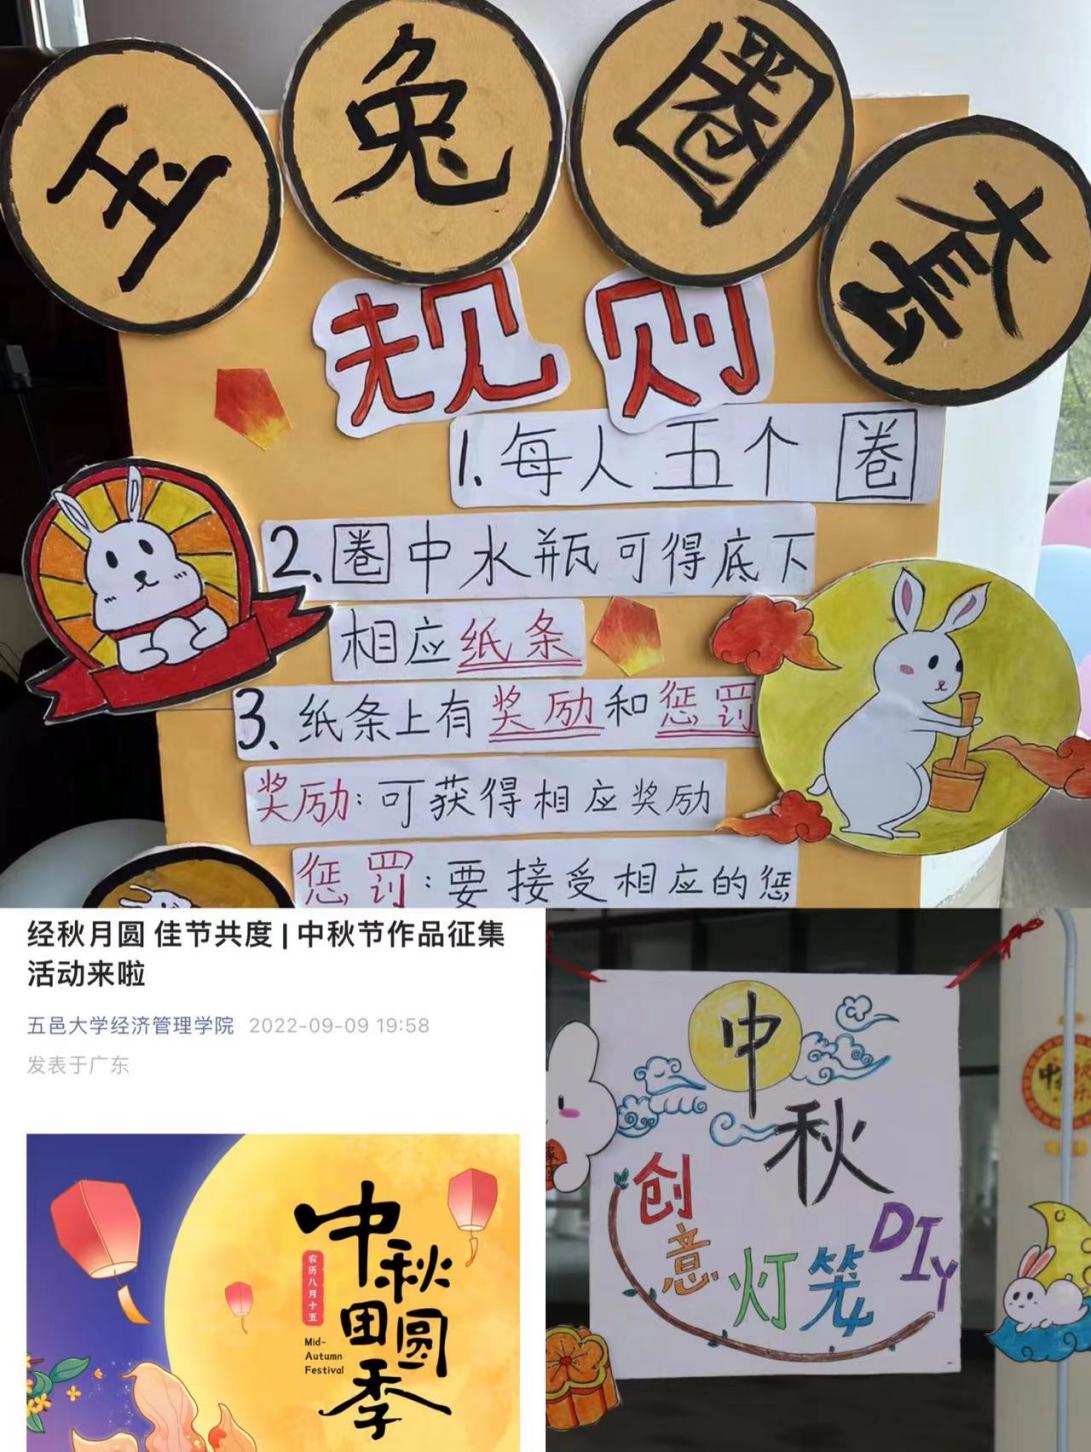 玉兔圈套
规则
1.每人五个圈
2、圈中水瓶可得底下
相应纸条
3、纸条上有奖励和惩罚
奖励:可获得相应奖励
惩罚:要接受相应的惩
经秋月圆 佳节共度 | 中秋节作品征集
活动来啦
五邑大学经济管理学院 2022-09-09 19:58
发表于广东
中秋
田圆
季
农历八月十五
Mid-
Autumn
Festival
中
秋
创
意
灯笼
DIy